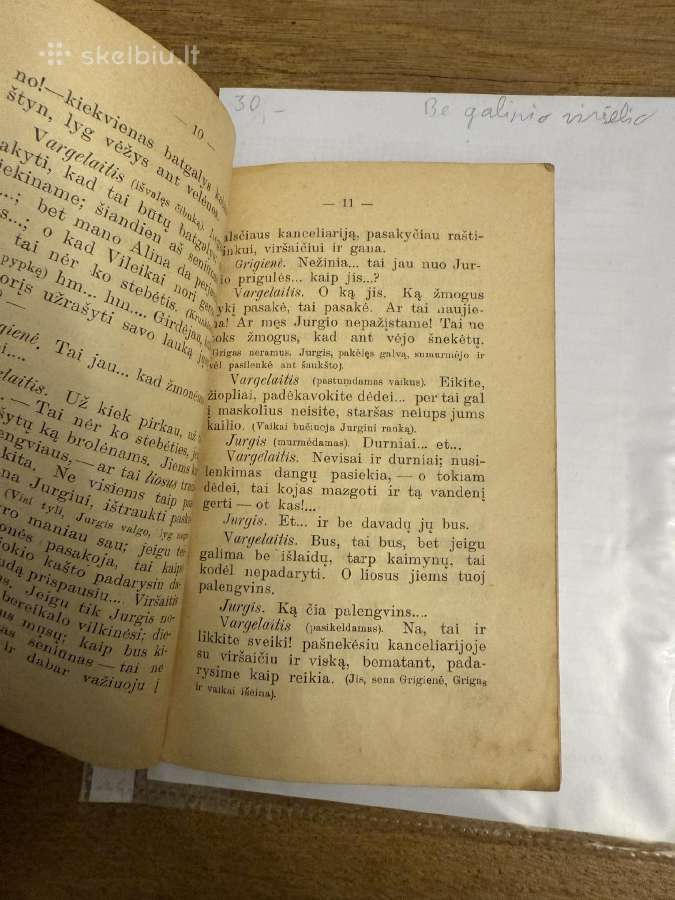 skelbiu.lt
30,-
Be galinio viršelio
— 10 —
no!—kiekvienas batgalys
štyn, lyg vėžys ant velėnos.
Vargelaitis (išvalęs čibuką).
akyti, kad tai būtų batgalys
iekiname; šiandien aš seniūnas
...; bet mano Alina da
s...; o kad Vileikai nori
tai nėr ko stebėtis.
pypkę) hm... hm.... Girdėjau,
oris užrašyti savo lauką
igienė. Tai jau... kad
elaitis. Už kiek pirkau, už
.— Tai nėr ko stebėties,
šytų ką brolėnams. Jiems
engviaus,—ar tai liosus
kita. Ne visiems taip
na Jurgiui, ištraukti
(Visi tyli, Jurgis valgo, lyg
ro maniau sau; jeigu
onės pasakoja, tai kaip
okio kašto padarysiu
udą prispausiu... Viršaitis
s. Jeigu tik Jurgis
bereikalo vilkinėsi;
us mųsų; kaip bus
as seniūnas—tai ne
ir dabar važiuoju į
— 11 —
alsčiaus kanceliariją, pasakyčiau rašti-
inkui, viršaičiui ir gana.
Grigienė. Nežinia... tai jau nuo Jur-
io prigulės... kaip jis...?
Vargelaitis. O ką jis. Ką žmogus
ykį pasakė, tai pasakė. Ar tai naujie-
na! Ar męs Jurgio nepažįstame! Tai ne
oks žmogus, kad ant vėjo šnekėtų.
Grigas neramus. Jurgis, pakėlęs galvą, sumurmėjo ir
vėl pasilenkė ant šaukšto).
Vargelaitis (pastumdamas vaikus). Eikite,
žiopliai, padėkavokite dėdei... per tai gal
į maskolius neisite, staršas nelups jums
kailio. (Vaikai bučiuoja Jurgini ranką).
Jurgis (murmėdamas). Durniai... et...
Vargelaitis. Nevisai ir durniai; nusi-
lenkimas dangų pasiekia,— o tokiam
dėdei, tai kojas mazgoti ir tą vandenį
gerti — ot kas!...
Jurgis. Et... ir be davadų jų bus.
Vargelaitis. Bus, tai bus, bet jeigu
galima be išlaidų, tarp kaimynų, tai
kodėl nepadaryti. O liosus jiems tuoj
palengvins.
Jurgis. Ką čia palengvins....
Vargelaitis (pasikeldamas). Na, tai ir
likkite sveiki! pašnekėsiu kanceliarijoje
su viršaičiu ir viską, bematant, pada-
rysime kaip reikia. (Jis, sena Grigienė, Grigas
ir vaikai išeina).